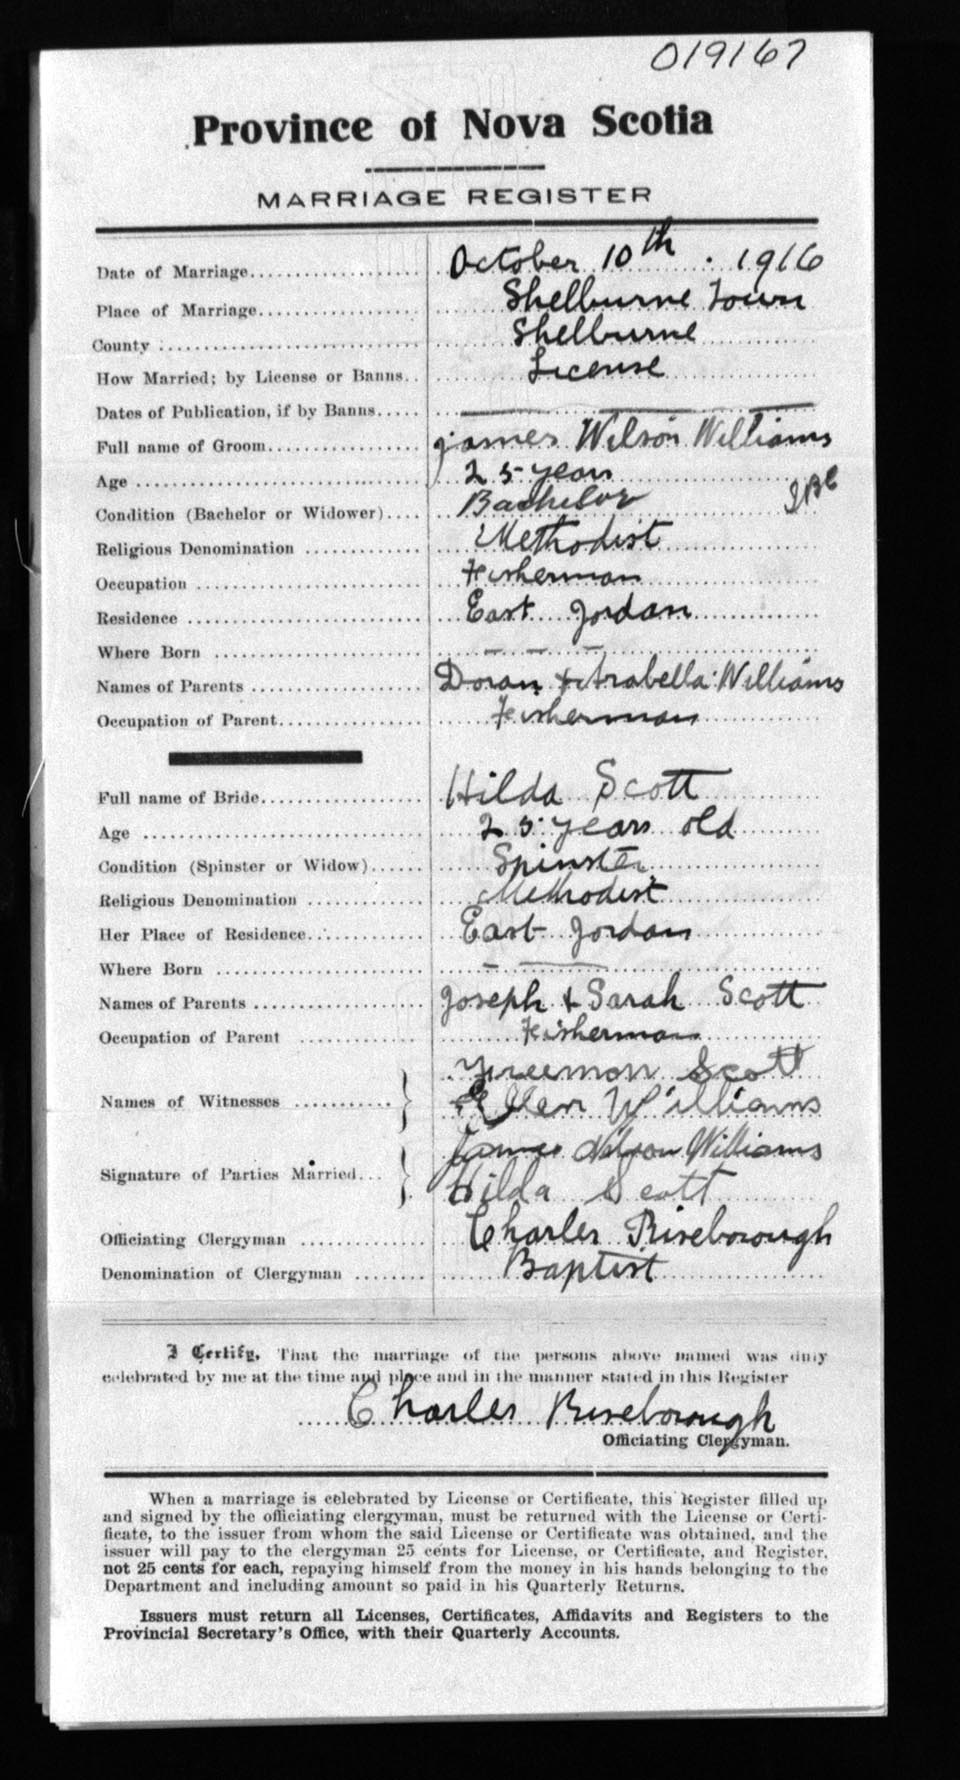 019167
Province of Nova Scotia
MARRIAGE REGISTER
Date of Marriage.................... October 10th . 1916
Place of Marriage.................. Shelburne Town
County : .......................... Shelburne
How Married; by License or Banns.. License
Dates of Publication, if by Banns..... ———
Full name of Groom................. james Wilson Williams
Age ............................. 25 years
Condition (Bachelor or Widower).... Bachelor
Religious Denomination ............ Methodist
Occupation ....................... Fisherman
Residence ........................ East Jordan
Where Born ..................... — — —
Names of Parents ................. Doran & Arabella Williams
Occupation of Parent.............. Fisherman
Full name of Bride................. Hilda Scott
Age ............................. 25 years old
Condition (Spinster or Widow)...... Spinster
Religious Denomination ............ Methodist
Her Place of Residence............ East Jordan
Where Born ..................... — ——
Names of Parents ................. Joseph & Sarah Scott
Occupation of Parent ............ Fisherman
Freemon Scott
Names of Witnesses ........... } Ellen Williams
James Wilson Williams
Signature of Parties Married... } Hilda Scott
Officiating Clergyman ............. Charles Riseborough
Denomination of Clergyman ........ Baptist
I Certify, That the marriage of the persons above named was duly
celebrated by me at the time and place and in the manner stated in this Register
Charles Riseborough
Officiating Clergyman.
When a marriage is celebrated by License or Certificate, this Register filled up
and signed by the officiating clergyman, must be returned with the License or Certi-
ficate, to the issuer from whom the said License or Certificate was obtained, and the
issuer will pay to the clergyman 25 cents for License, or Certificate, and Register,
not 25 cents for each, repaying himself from the money in his hands belonging to the
Department and including amount so paid in his Quarterly Returns.
Issuers must return all Licenses, Certificates, Affidavits and Registers to the
Provincial Secretary's Office, with their Quarterly Accounts.